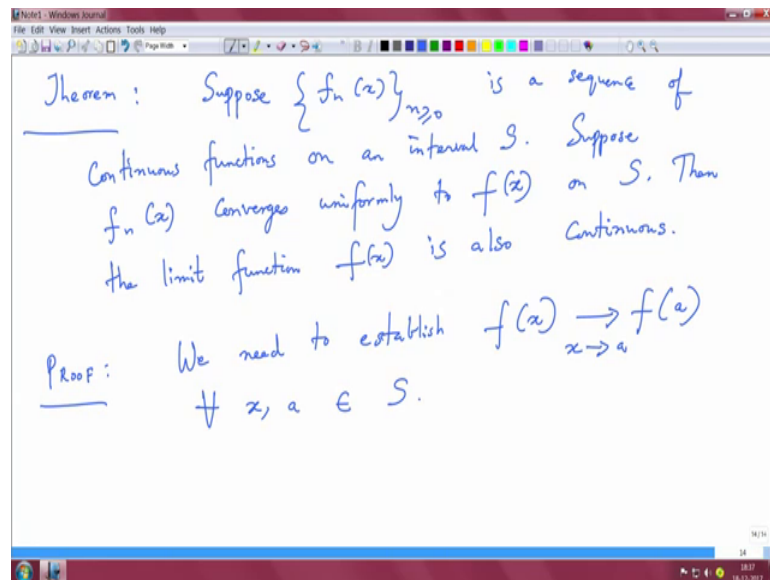 Note1 - Windows Journal
File Edit View Insert Actions Tools Help
Page Width
Theorem : Suppose {fn (x)}n≥0 is a sequence of
Continuous functions on an interval S. Suppose
fn (x) converges uniformly to f(x) on S. Then
the limit function f(x) is also continuous.
PROOF : We need to establish f(x) → f(a)
x→a
∀ x, a ∈ S.
14/14
14
18:37
18-12-2017